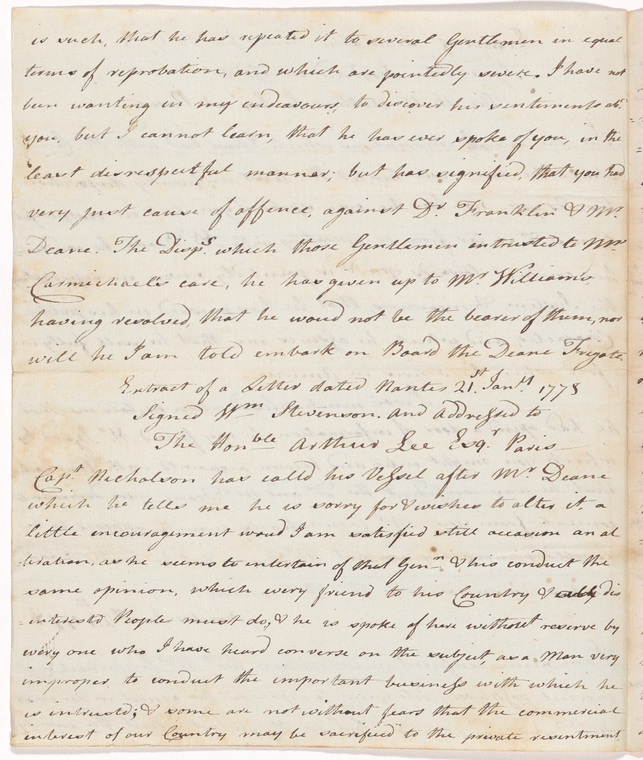 is such, that he has repeated it to several Gentlemen in equal
terms of reprobation, and which are pointedly severe. I have not
been wanting in my endeavours, to discover his sentiments abt
you, but I cannot learn, that he has ever spoke of you, in the
least disrespectful manner; but has signified, that you had
very just cause of offence, against Dr Franklin & Mr
Deane. The Disps which those Gentlemen intrusted to Mr
Carmichael's care, he has given up to Mr Williams
having resolved, that he would not be the bearer of them, nor
will he I am told embark on Board the Deane Frigate
Extract of a Letter dated Nantes 21st Jany 1778
Signed Wm Stevenson. And Addressed to
The Honble Arthur Lee Esqr Paris
Capt Nicholson has called his Vessel after Mr Deane
which he tells me he is sorry for & wishes to alter it. a
little encouragement woud I am satisfied still occasion an al
teration, as he seems to entertain of that Genn & his conduct the
same opinion, which every friend to his Country & dis
interestd People must do, & he is spoke of here without reserve by
every one who I have heard converse on the subject, as a Man very
improper to conduct the important business with which he
is intrustd; & some are not without fears that the commercial
interest of our Country may be sacrificed to the private resentment